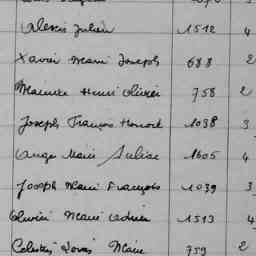 Alexis Julien 1512 4
Xavier Marie Joseph 688 2
Maurice Henri Olivier 758 2
Joseph François Honoré 1038 3
Ange Marie 1605 4
Joseph Marie François 1039 3
Olivier Marie Adrien 1513 4
Célestin Louis Marie 759 2